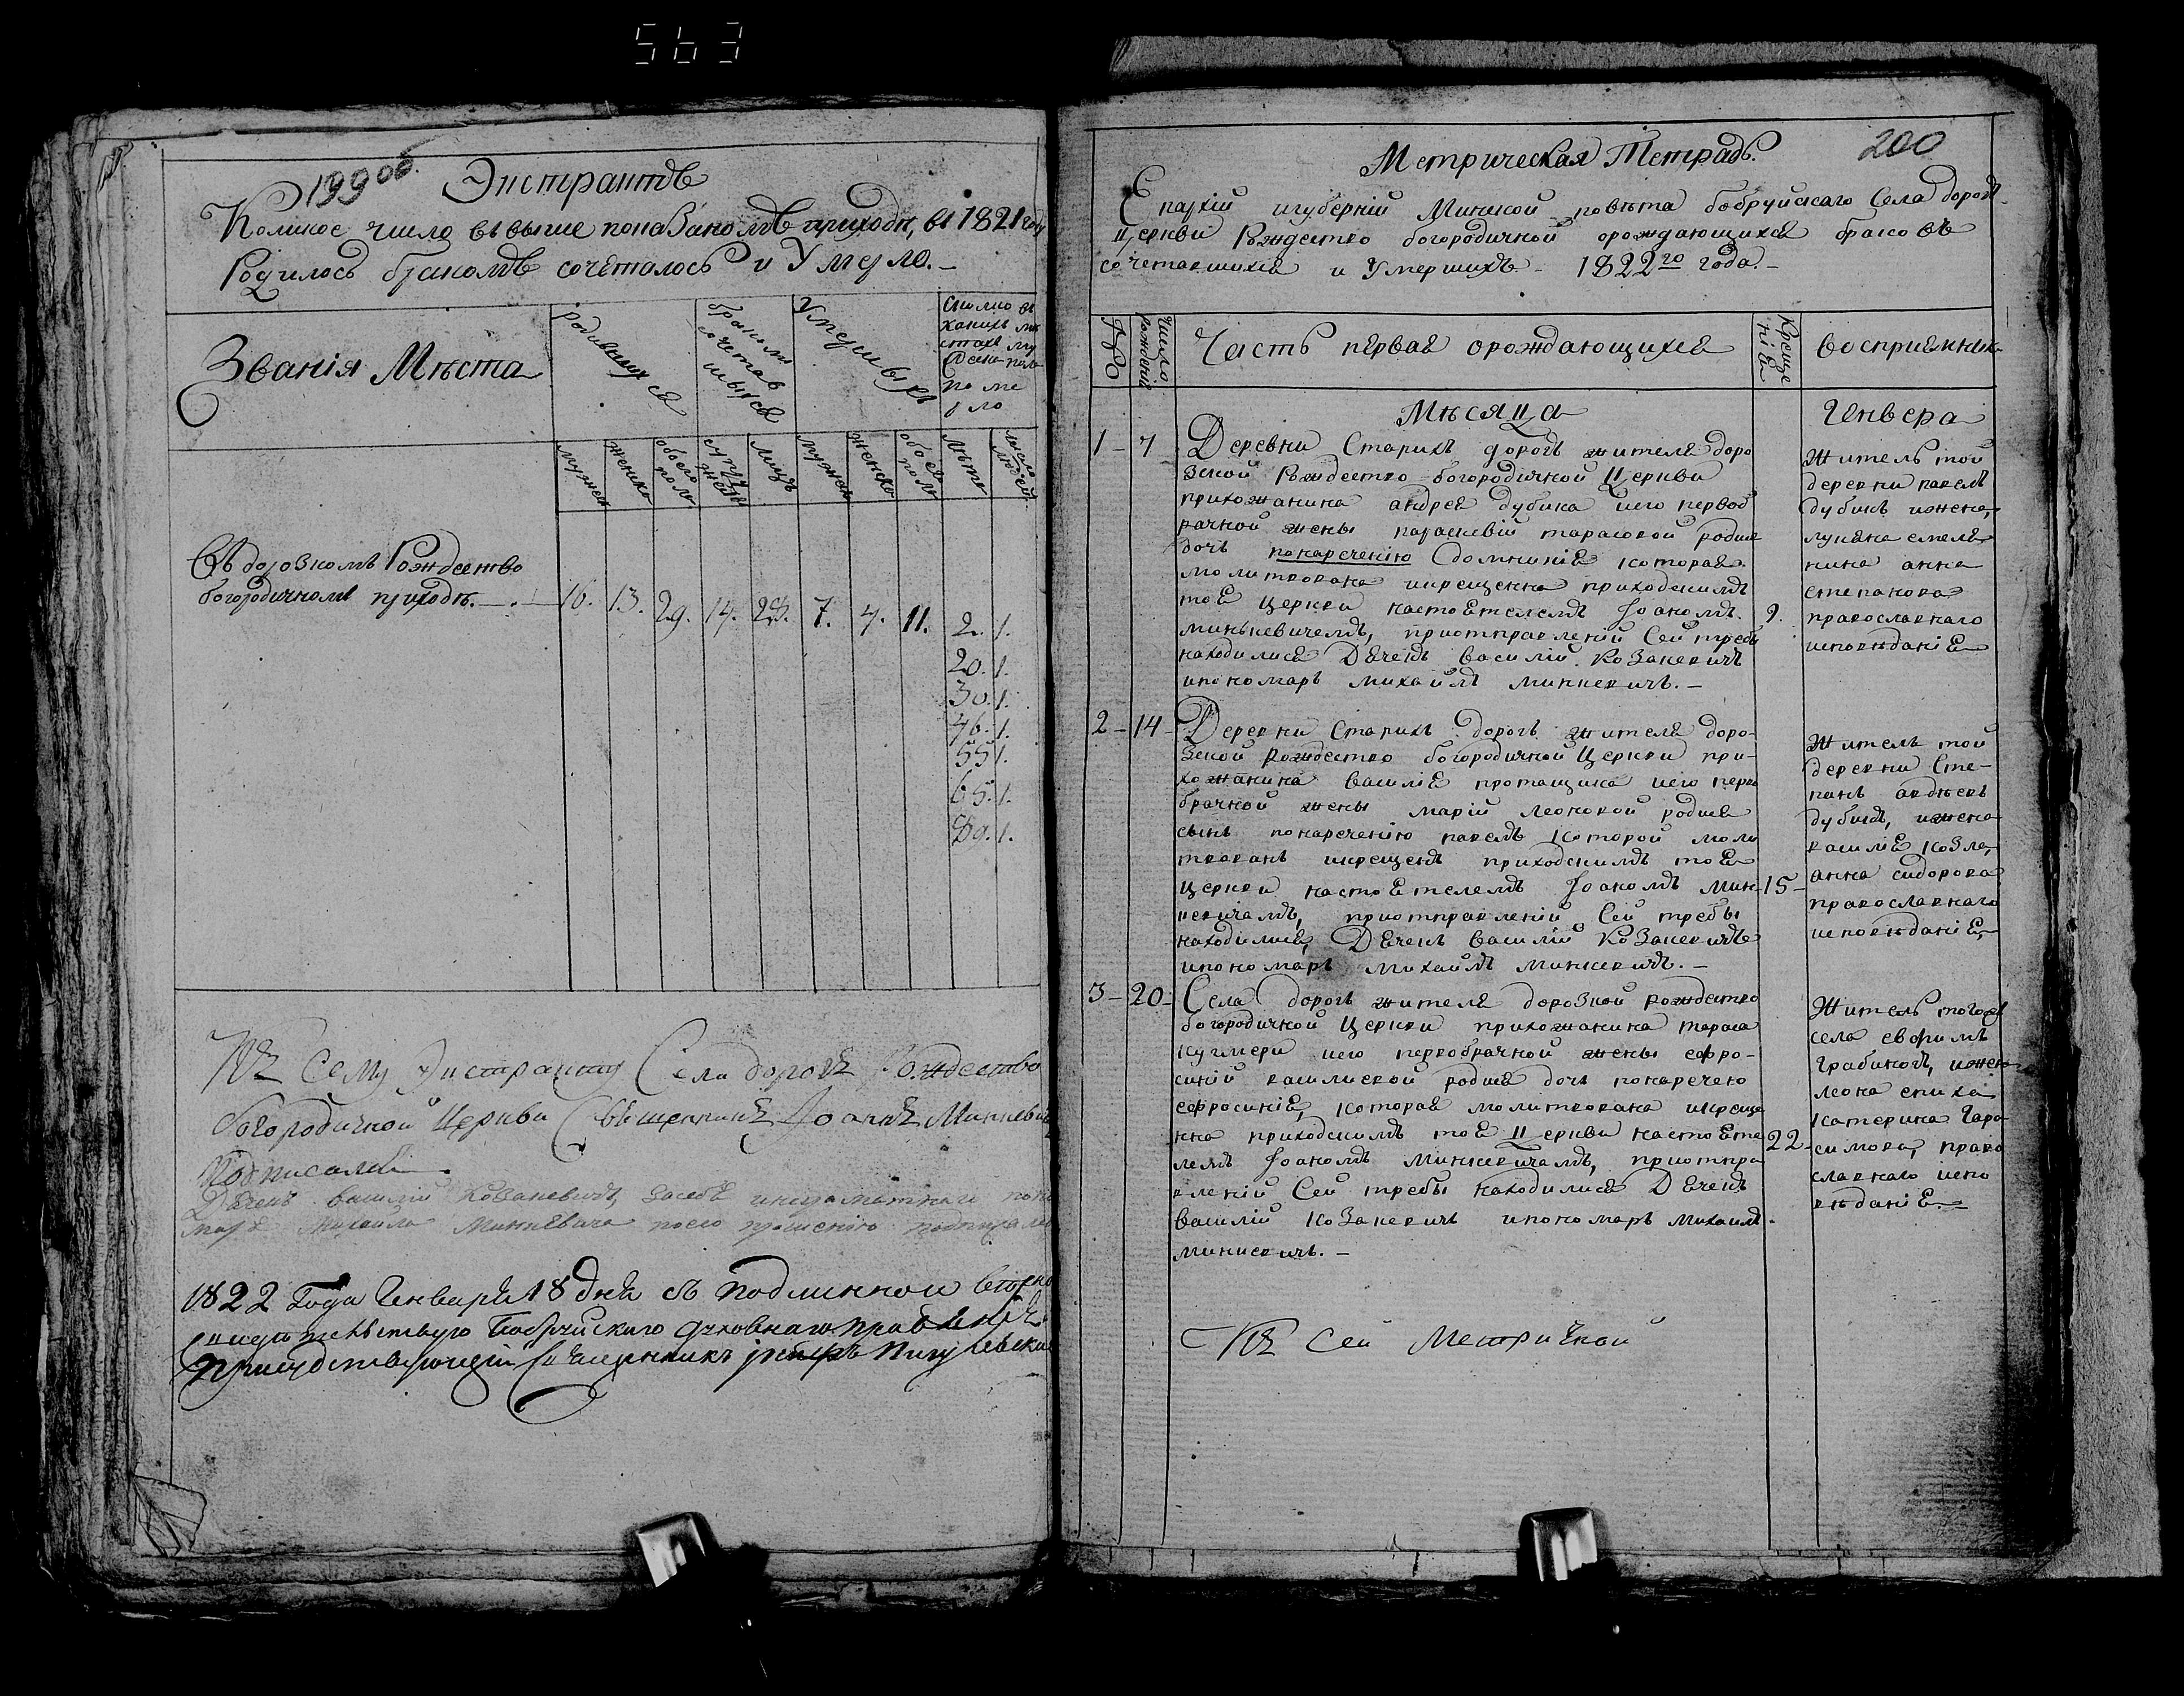 563
199 об.
Экстрактъ
Коликое число въ выше показаномъ приходѣ, въ 1821 году
Родилось бракомъ сочеталось и Умерло.-
Званія Мѣста
родившихся
бракомъ сочетав шыхся
Умершыхъ
мужеска
женска
обоего полу
супружествъ
лицъ
мужеска
женска
обоего полу
лѣта
Въ дорозкомъ Рождество
богородичномъ приходѣ.-
16. 13. 29. 14. 28. 7. 4. 11. 2. 1.
20. 1.
30. 1.
46. 1.
55 1.
65. 1.
89. 1.
Къ Сему Экстракту Села дорогъ Рождество
богородичной Церкви Священникъ Іоаннъ Минкевич
Подписалъ
Дячекъ василий Козакевичъ, засебѣ инеграматнаго поно
маря Михаила Минкевича поего прошению подписал
1822 Года Генваря 18 дня съ подлинной
Бобруйскаго духовнаго правленія
Присудствующий Священникъ
200
Метрическая Тетрадь.
Епархіи игуберніи Минской повѣта бобруйскаго Села дорогъ
церкви Рождество богородичной орождающихся бракомъ
сочетавшихся и Умершихъ - 1822го года.-
№
Число рождения
Часть первая орождающихся
Креще ніе
восприемники
Мѣсяца
Генвера
1 - 7
Деревни Старихъ дорогъ жителя доро
зской Рождество-богородичной Церкви
прихожанина андрея дубика иего первоб
рачной жены параскевіи тарасовой родися
дочь понаречению Домникия которая
молитвована икрещенна приходскимъ
тоя церкви настоятелемъ Іоаномъ 9.
минькевичемъ, приотправленіи Сей требы
находилися Дячекъ василій Козакевичъ
ипономарь михаилъ минкевичъ.-
Житель той
деревни павелъ
дубикъ ижена,
лукяна емеля
ника анна
степанова
православнаго
исповѣданія
2 - 14
Деревни Старихъ дорогъ жителя доро-
зской рождество богородичной Церкви при-
хожанина василія протащика иего перво
брачной жены маріи леоновой родися
сынъ понаречению павелъ которой моли
твованъ икрещенъ приходскимъ тоя
церкви настоятелемъ Іоаномъ Мин- 15 -
кевичамъ, приотправленіи Сей требы
находилися, Дячекъ василій Козакевичъ
ипономарь михаилъ минкевичъ.-
Житель той
деревни Сте-
панъ авдѣевъ
дубикъ, ижена
василія козла,
анна сидорова
православнаго
исповѣданія,
3 - 20 -
Села дорогъ жителя дорозкой рождество
богородичной Церкви прихожанина тараса
кушмера иего первобрачной жены ефро-
синіи василиевой родися дочь понаречено
ефросиния, которая молитвована икреще
нна приходскимъ тоя Церкви настояте 22 -
лемъ Іоаномъ Минкевичамъ, приотпра
вленіи Сей требы находилися Дячекъ
василій Козакевичъ ипономарь михаилъ
минкевичъ.-
Житель тогожъ
села евфимъ
Грабикоъ, ижена
леона
катерина Гара-
симова, право
славнаго испо
вѣданія.-
Къ Сей Метричной